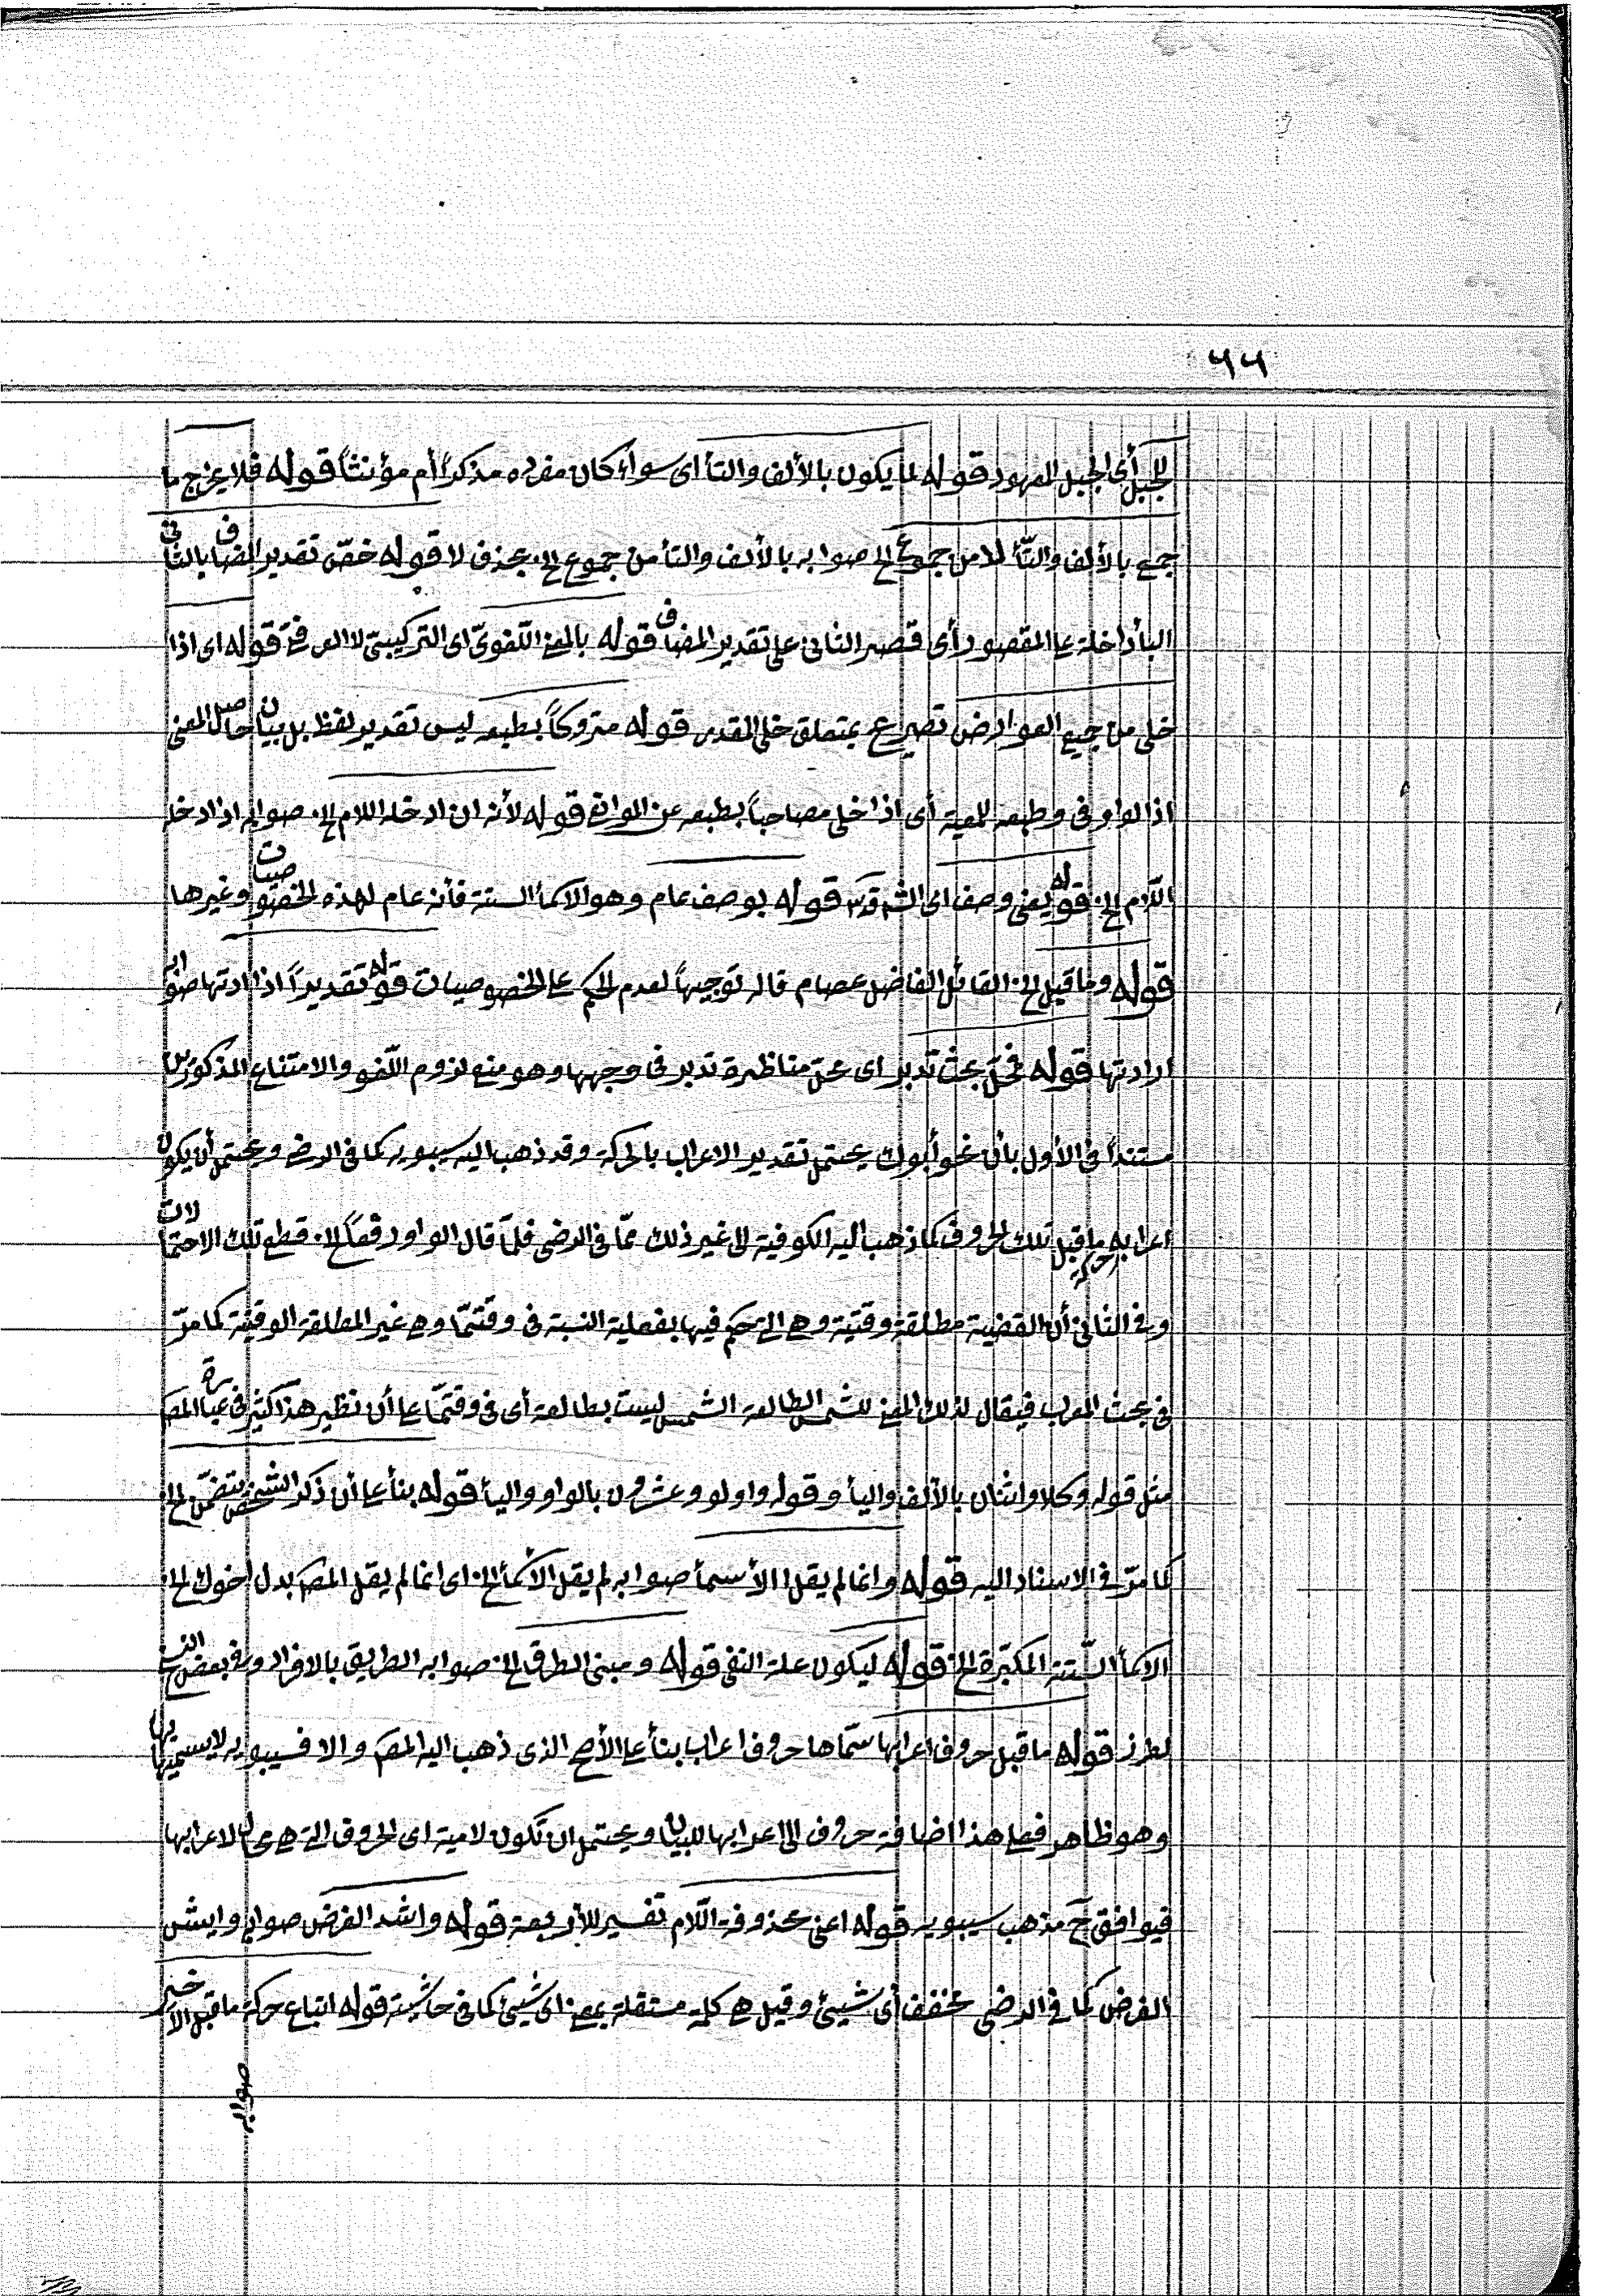 ٦٦
للجبل أى الجبل المعهود قوله لما يكون بالألف والتأ اى سواء كان مفرده مذكراً أم مؤنثاً قوله فلا يخرج ما
جمع بالألف والتّأ لا من جموع الخ صوابه بالألف والتأ من جموع الخ بحذف لا قوله خصّ تقدير المضاف بالثانى
البأ داخلة على المقصور أى قصر الثانى على تقدير المضاف قوله بالمعنى اللّغوىّ اى التركيبىّ لا العرفىّ قوله اى اذا
خلى من جميع العوارض تصريح بمتعلق خلى المقدر قوله متروكاً بطبعه ليس تقدير لفظ بل بيان حاصل المعنى
اذ الواو فى وطبعه للمعية أى اذا خلى مصاحباً بطبعه عن الموانع قوله لأنه ان ادخله اللام الخ صوابه اذا ادخله
اللّام الخ قوله يعنى وصف اى الش قدس قوله بوصف عام وهو الاسمأ الستة فأنه عام لهذه الخصوصيات وغيرها
قوله وما قيل الخ القائل الفاضل عصام قاله توجيهاً لعدم الحكم على الخصوصيات قوله تقديراً اذا ارادتها صوابه
ارادتها قوله فمحلّ بحث تدبر اى محلّ مناظرة تدبر فى وجهها وهو منع لزوم اللّغو والامتناع المذكورين
مستنداً فى الأول بأن نحو أبوك يحتمل تقدير الاعراب بالحركة وقد ذهب اليه سيبويه كما فى الرضى ويحتمل أن يكون
اعرابه بحركة ما قبل تلك الحروف كما ذهب اليه الكوفية الى غير ذلك ممّا فى الرضى فلمّا قال الواو رفعاً الخ قطع تلك الاحتمالات
وفى الثانى أن القضية مطلقة وقتيّة وهى التى حكم فيها بفعلية النسبة فى وقت مّا وهى غير المطلقة الوقتيّة كما مرّ
فى بحث المعرب فيقال لذلك المعنى للشمس الطالعة الشمس ليست بطالعة أى فى وقت مّا على أن نظير هذا كثير فى عبارة المص
مثل قوله وكلا واثنان بالألف واليأ وقوله واولو وعشرون بالواو واليأ قوله بنأ على أن ذكر الشخص يتضمّن الخ
كما مرّ فى الاسناد اليه قوله وانما لم يقل الأسمأ صوابه لم يقل الأسمأ الخ اى انما لم يقل المص بدل اخوك الخ
الاسمأ السّتة المكبّرة الخ قوله ليكون علة النفى قوله ومبنى الطرق الخ صوابه الطريق بالافراد وفى بعض النسخ
لطرز قوله ما قبل حروف اعرابها سمّاها حروف اعراب بنأ على الأصح الذى ذهب اليه المص والا فسيبويه لا يسمّيها بها
وهو ظاهر فعلى هذا اضافة حروف الى اعرابها للبيان ويحتمل ان تكون لامية اى الحروف التى هى محل لاعرابها
فيوافق ح مذهب سيبويه قوله اعنى محذوفة اللّام تفسير للأربعة قوله واشد الغرض صوابه وايش
الغرض كما فى الرضى مخفف أى شيئ وقيل هى كلمة مستقلة بمعنى اى شيئ كما فى حاشية قوله اتباع حركة ما قبل الأخير
صوابه